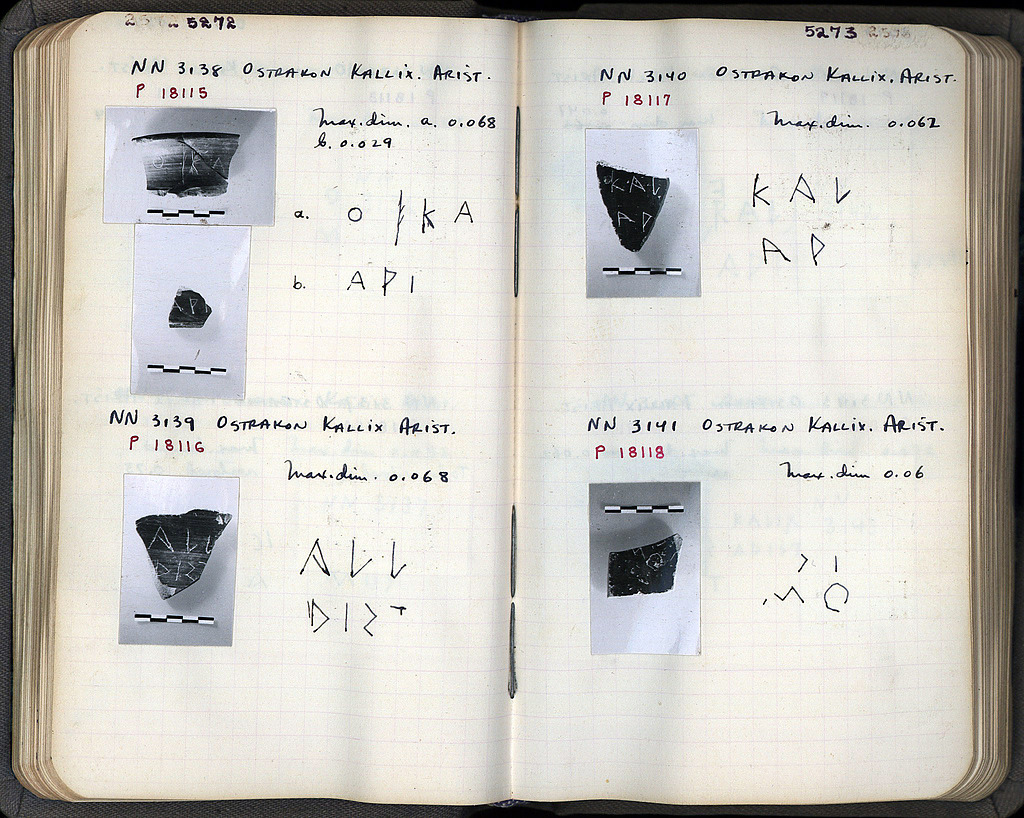 5272
NN 3138 OSTRAKON KALLIX. ARIST.
P 18115
Max. dim. a. 0.068
b. 0.029
a. Ο Ι Κ Α
b. Α Ρ Ι
NN 3139 OSTRAKON KALLIX ARIST.
P 18116
Max. dim. 0.068
5273
NN 3140 OSTRAKON KALLIX. ARIST.
P 18117
Max. dim. 0.062
Κ Α
Α Ρ
NN 3141 OSTRAKON KALLIX. ARIST.
P 18118
Max. dim 0.06